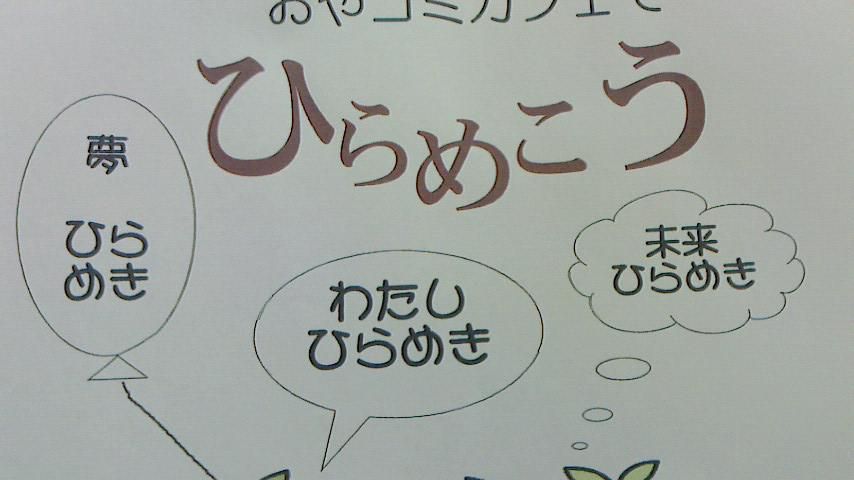 おやコミカフェで
ひらめこう
夢
ひら
めき
わたし
ひらめき
未来
ひらめき